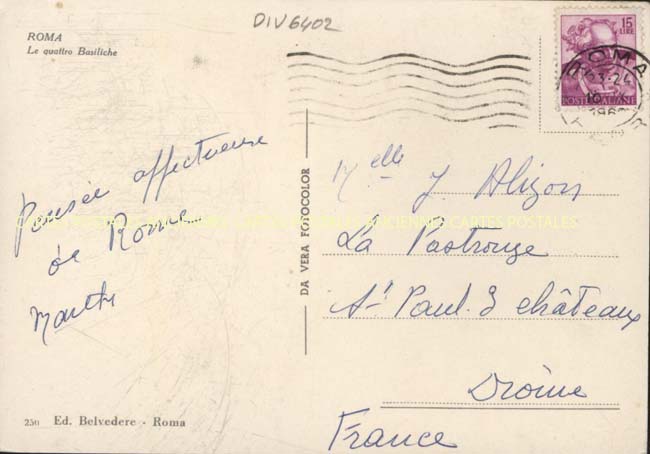 DIV6402
ROMA
Le quattro Basiliche
15
LIRE
ROMA
POSTE ITALIANE
Pensée affectueuse
de Rome
Marthe
DA VERA FOTOCOLOR
Melle J. Alizon
La
St Paul 3 châteaux
Drôme
France
250 Ed. Belvedere - Roma
ANCIENNES CARTES POSTALES